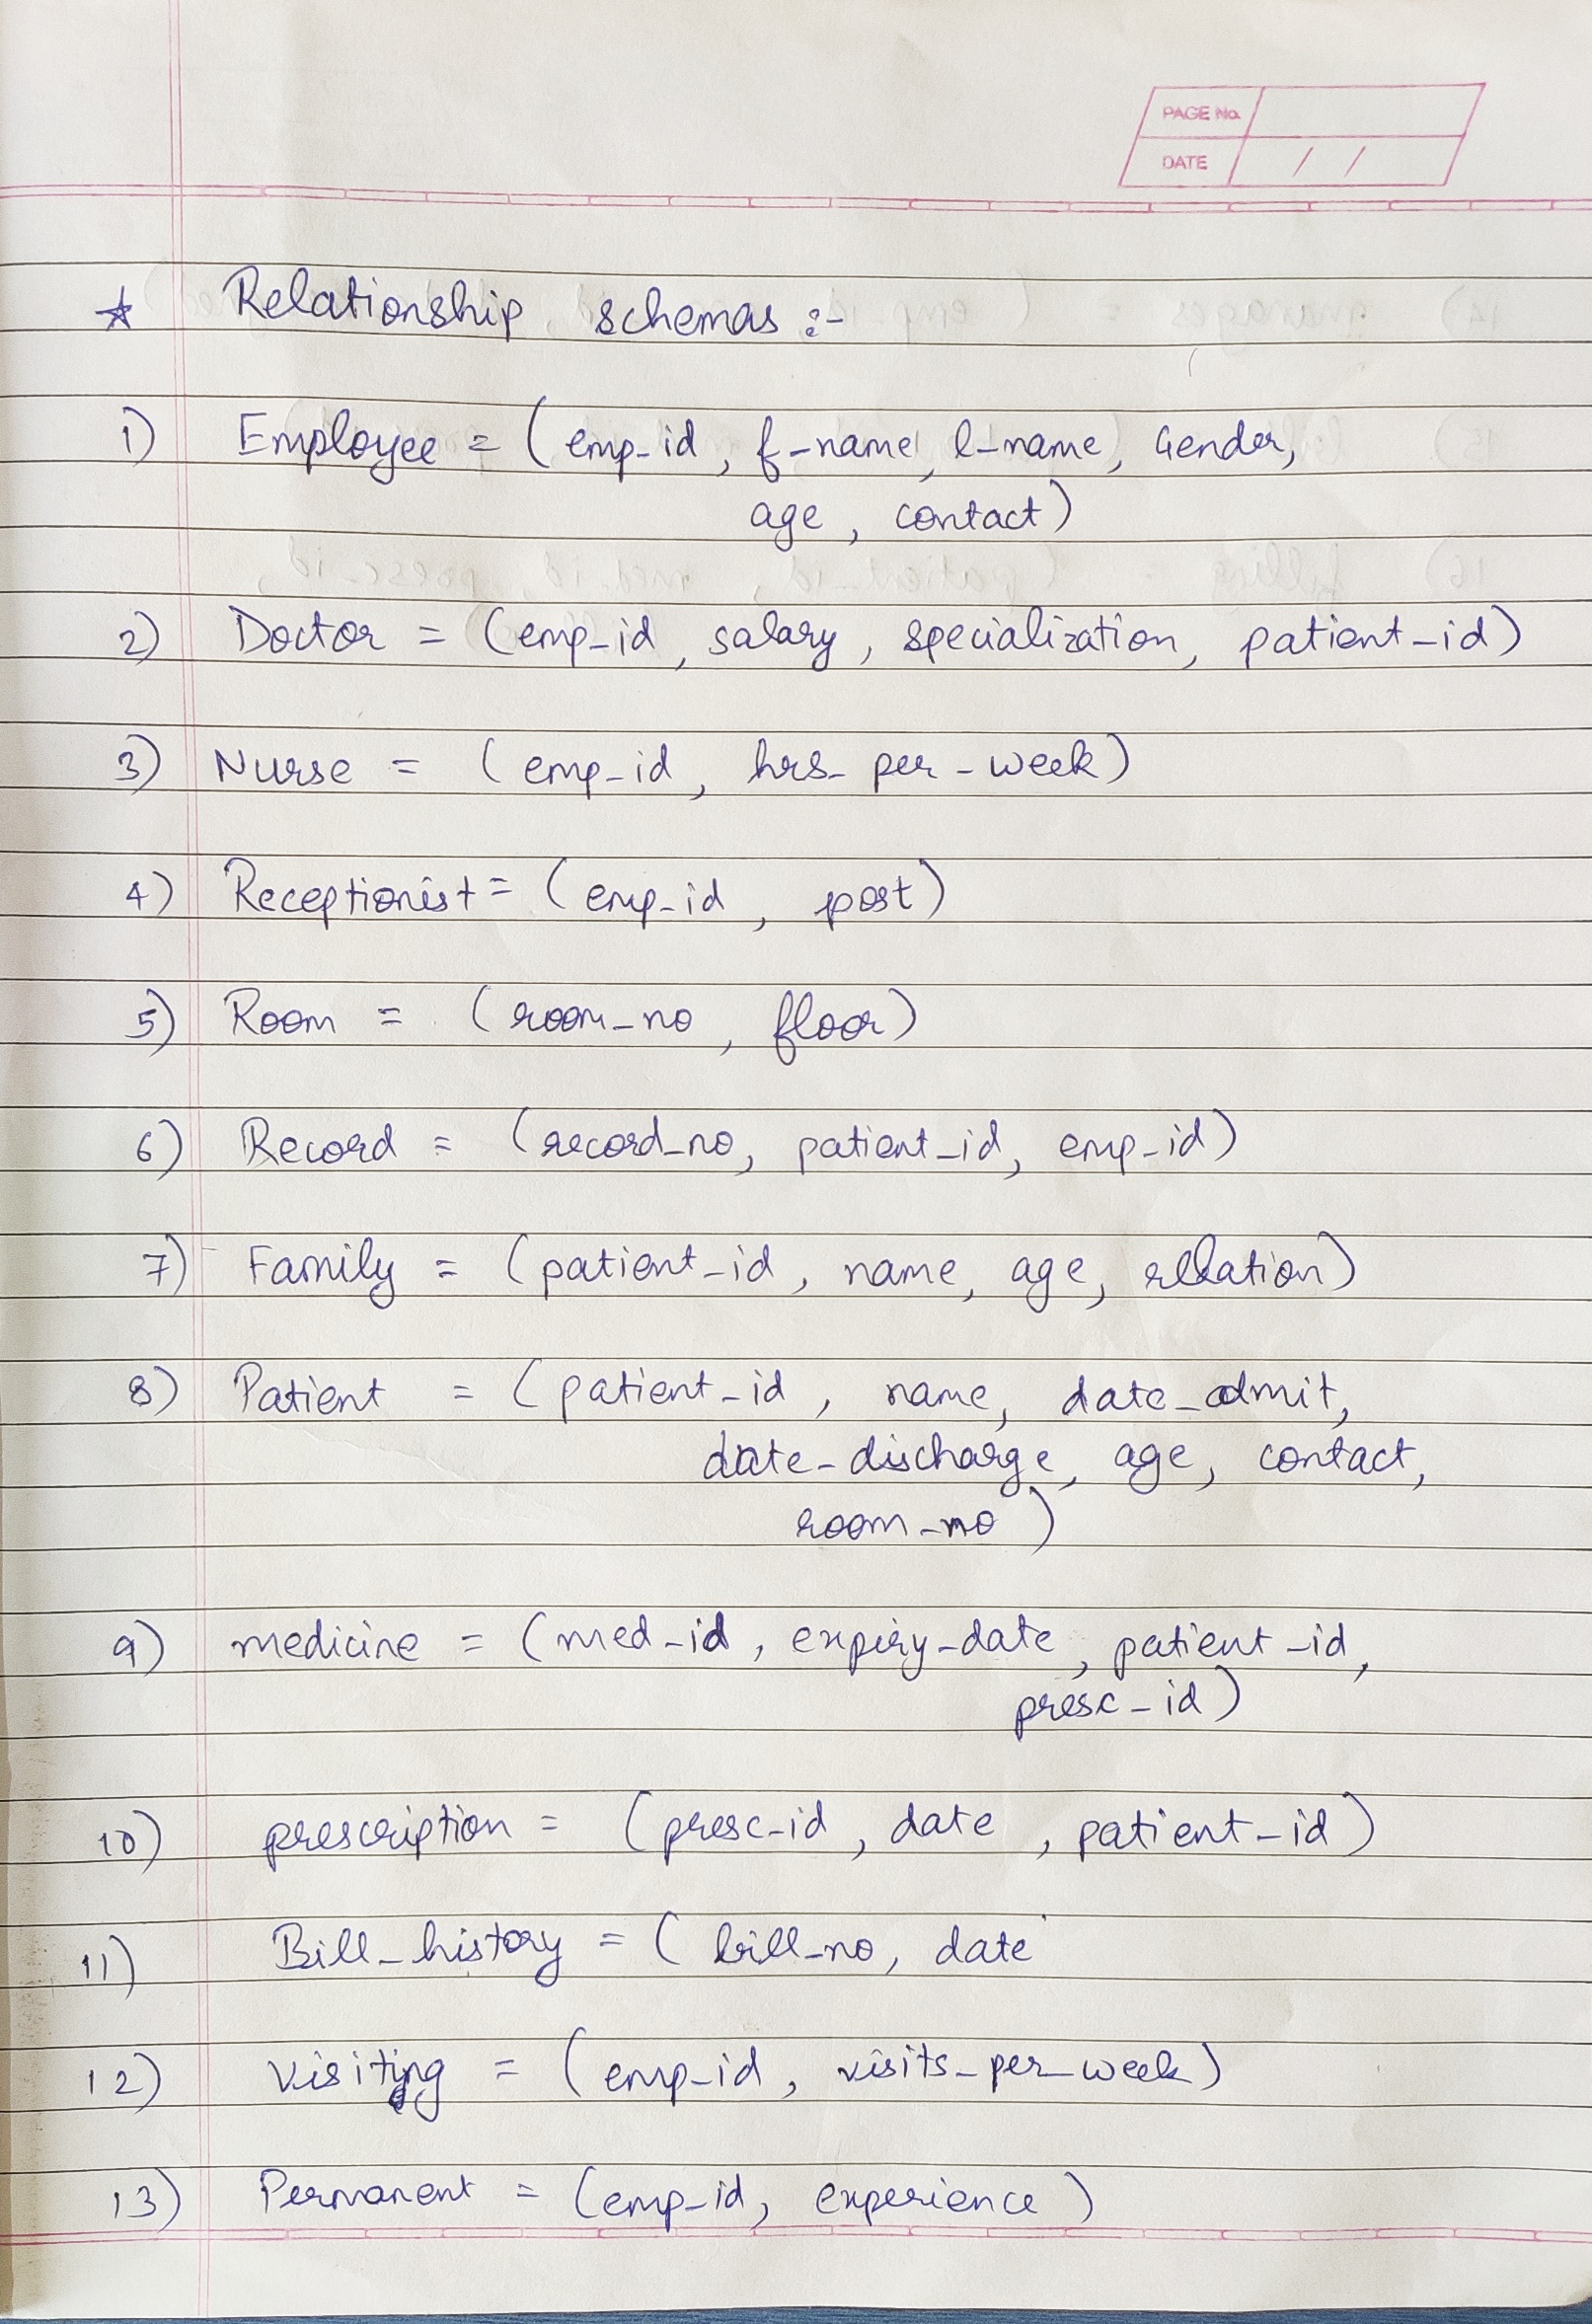 PAGE No.
DATE / /
☆ Relationship schemas :-
1) Employee = ( emp_id , f_name, l_name, Gender,
age , contact )
2) Doctor = (emp_id , salary , specialization, patient_id )
3) Nurse = ( emp_id , hrs_per_week )
4) Receptionist = ( emp_id , post )
5) Room = ( room_no , floor )
6) Record = (record_no, patient_id, emp_id )
7) Family = ( patient_id , name, age, relation )
8) Patient = ( patient_id , name, date_admit,
date_discharge, age, contact,
room_no )
9) medicine = ( med_id , expiry_date , patient_id,
presc_id )
10) prescription = ( presc_id , date , patient_id )
11) Bill_history = ( bill_no, date
12) Visiting = ( emp_id , visits_per_week )
13) Permanent = (emp_id, experience )